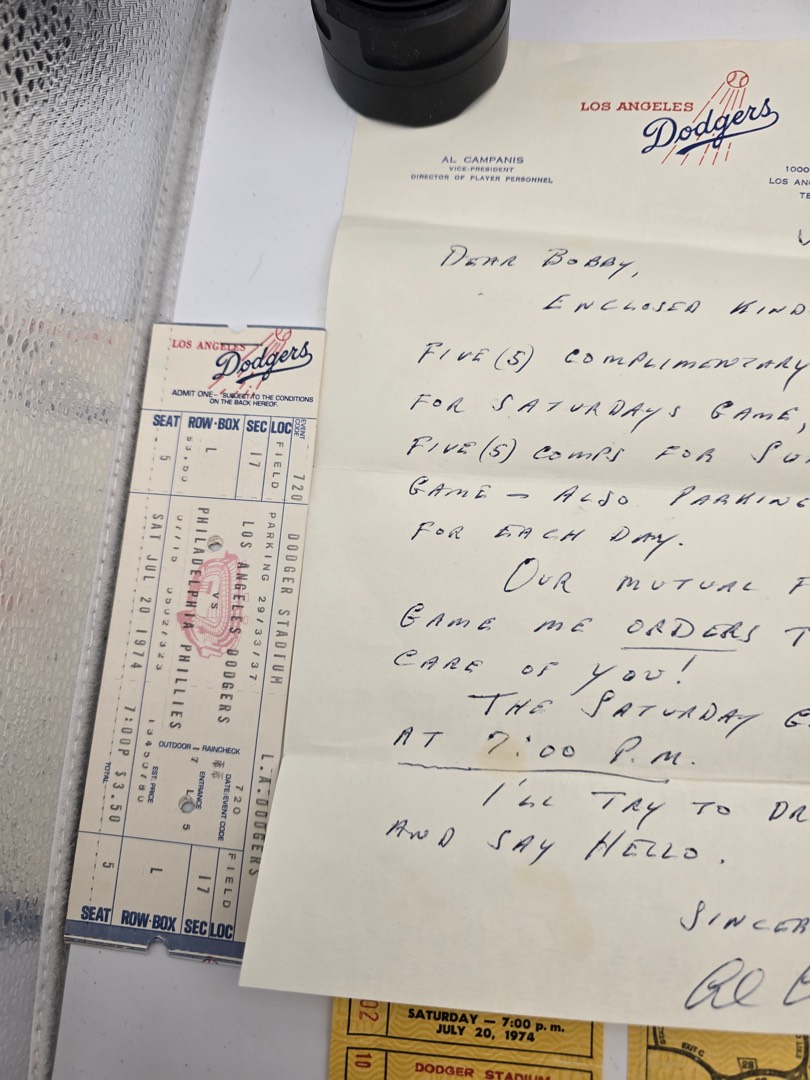 LOS ANGELES
Dodgers
AL CAMPANIS
VICE-PRESIDENT
DIRECTOR OF PLAYER PERSONNEL
1000
DEAR BOBBY,
ENCLOSED KIND
FIVE (5) COMPLIMENTARY
FOR SATURDAYS GAME,
FIVE (5) COMPS FOR SU
GAME - ALSO PARKING
FOR EACH DAY.
OUR MUTUAL F
GAVE ME ORDERS T
CARE OF YOU!
THE SATURDAY G
AT 7:00 P.M.
I'LL TRY TO DR
AND SAY HELLO.
SINCER
Al C
LOS ANGELES
Dodgers
ADMIT ONE - SUBJECT TO THE CONDITIONS
ON THE BACK HEREOF.
SEAT ROW-BOX SEC LOC EVENT CODE
5 L 17 FIELD 720
$3.50
DODGER STADIUM
PARKING 29/33/37
LOS ANGELES DODGERS
VS
PHILADELPHIA PHILLIES
SAT JUL 20 1974 7:00P $3.50
L.A.DODGERS
OUTDOOR - RAINCHECK
DATE/EVENT CODE
720
ENTRANCE
EST. PRICE
TOTAL
5 L 17 FIELD
SEAT ROW-BOX SEC LOC
SATURDAY — 7:00 p. m.
JULY 20, 1974
10
DODGER STADIUM
EXIT C
28